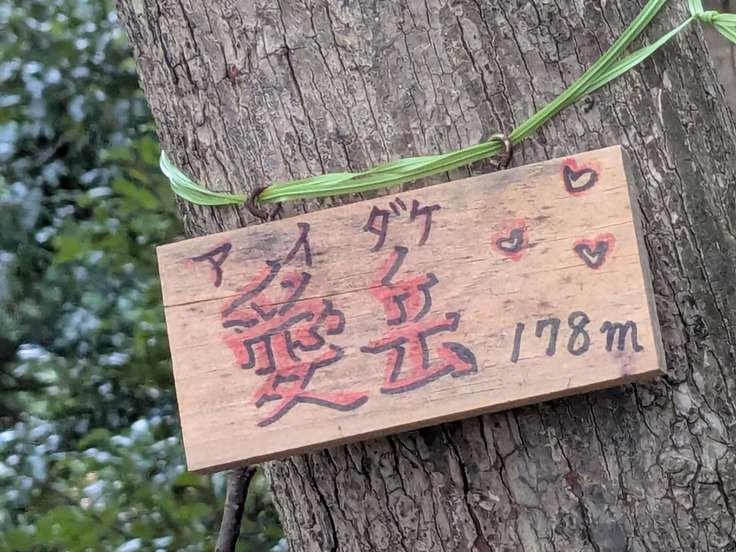 アイ ダケ
愛岳 178m